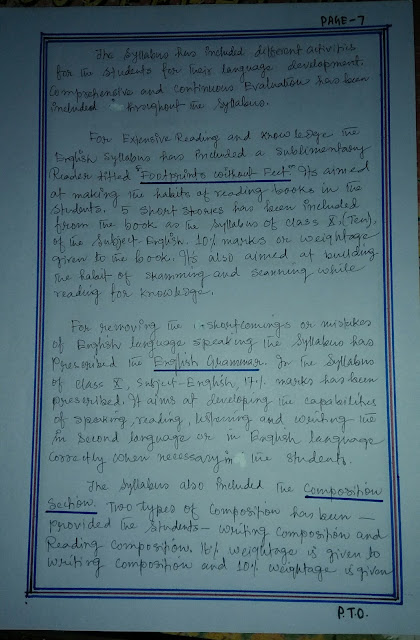 PAGE-7
The Syllabus has included different activities
for the students for their language development.
Comprehensive and continuous Evaluation has been
included throughout the Syllabus.
For Extensive Reading and knowledge the
English Syllabus has included a Sublimentary
Reader titled "Footprints without Feet" It's aimed
at making the habits of reading books in the
students. 5 short stories has been included
from the book as the Syllabus of class X (Ten),
of the Subject English. 10% marks or weightage
given to the book. It's also aimed at building
the habit of skamming and scanning while
reading for knowledge.
For removing the shortcomings or mistakes
of English language speaking the Syllabus has
prescribed the English Grammar. In the Syllabus
of class X, Subject-English, 17% marks has been
prescribed. It aims at developing the capabilities
of speaking, reading, listening and writing the
in Second language or in English language
correctly when necessary in the students.
The Syllabus also included the Composition
Section. Two types of composition has been —
provided the students — writing composition and
Reading composition. 16% weightage is given to
writing composition and 10% weightage is given
P.T.O.